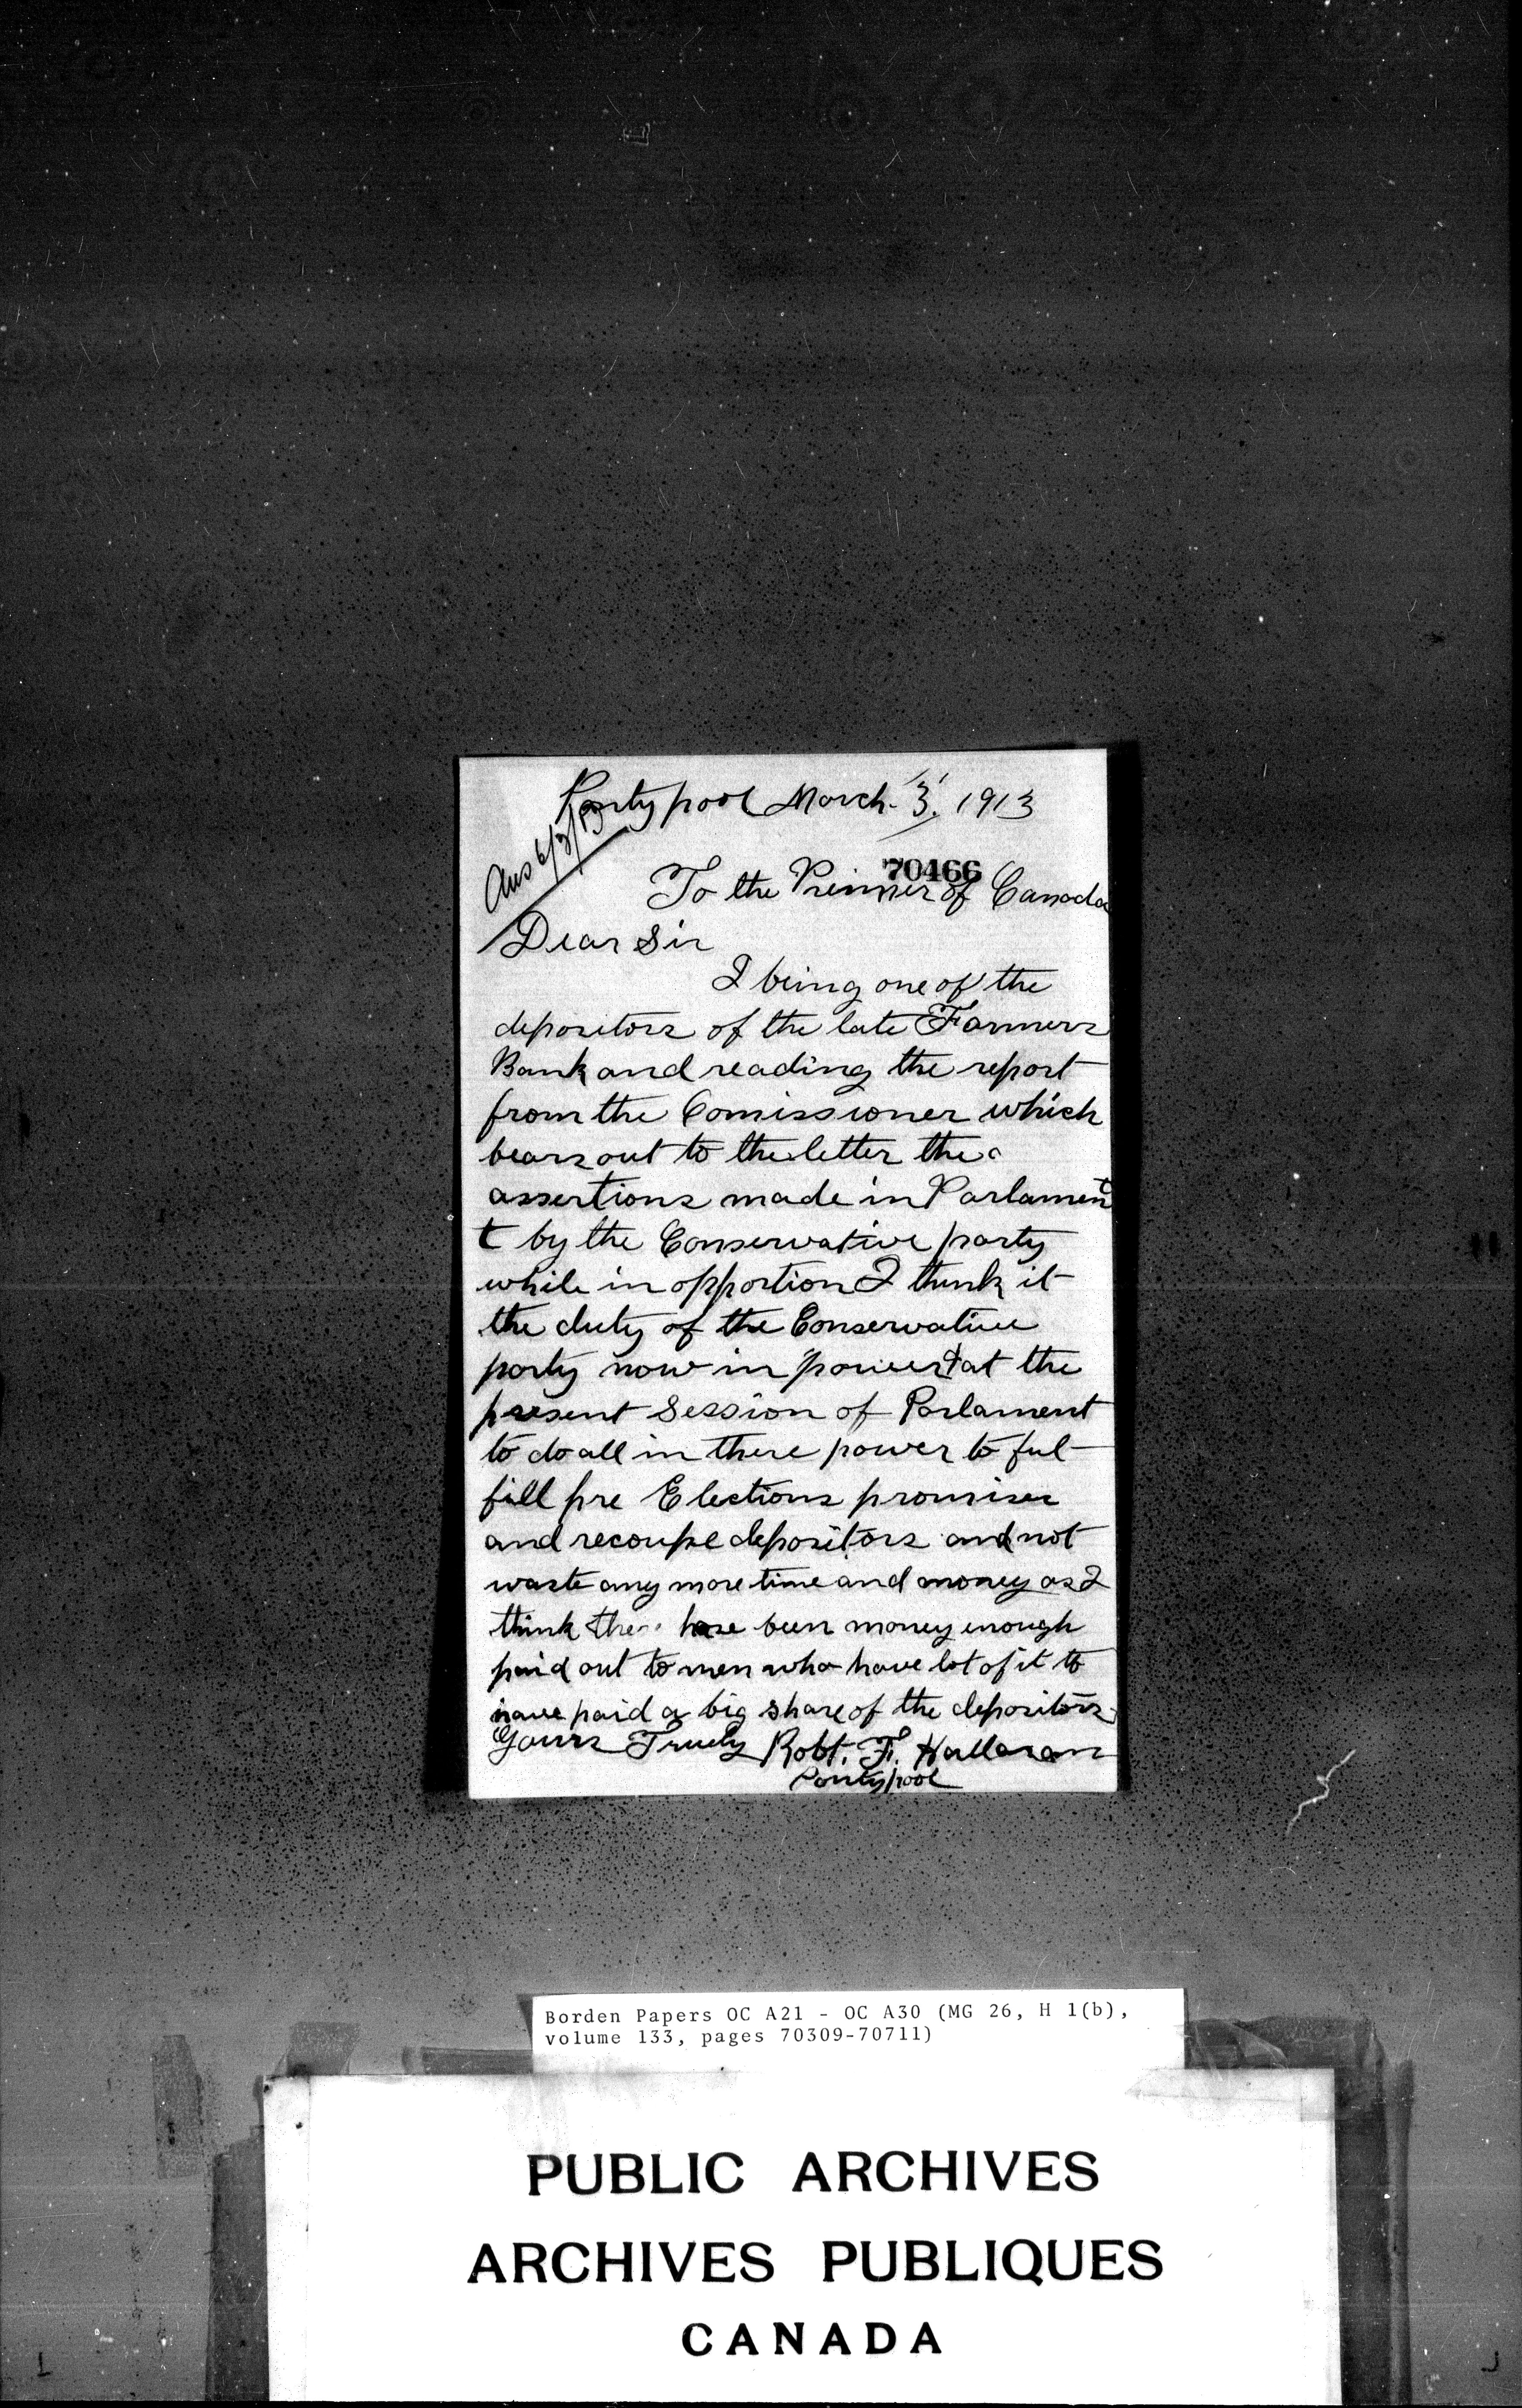 Pontypool March. 3. 1913
Ans 6/3/13
70466
To the Primier of Canada
Dear Sir
I being one of the
depositors of the late Farmers
Bank and reading the report
from the Comissioner which
bears out to the letter the
assertions made in Parlament
t by the Conservative party
while in opportion I think it
the duty of the Conservative
party now in power & at the
present Session of Parlament
to do all in there power to ful
fill pre Elections promises
and recoupe depositors and not
waste any more time and money as I
think there have been money enough
paid out to men who have lot of it to
have paid a big share of the depositors
Yours Truely Robt. F. Halloran
Pontypool
Borden Papers OC A21 - OC A30 (MG 26, H 1(b),
volume 133, pages 70309-70711)
PUBLIC ARCHIVES
ARCHIVES PUBLIQUES
CANADA